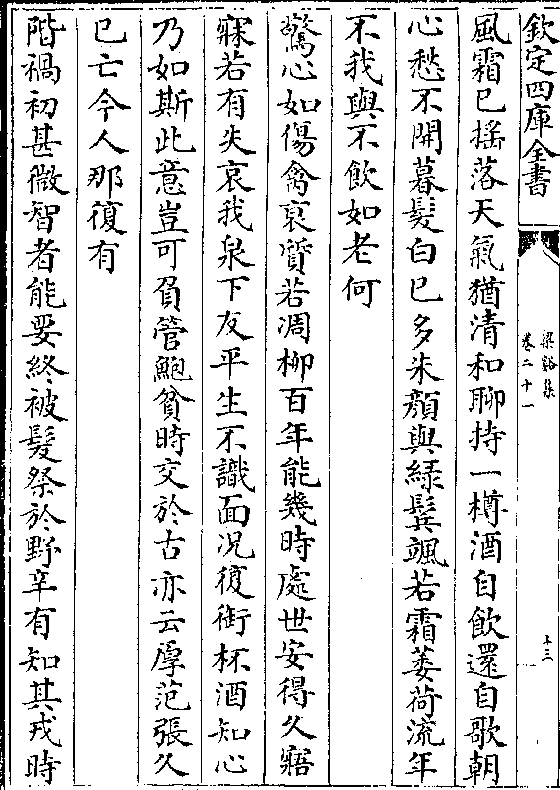 欽定四庫全書
梁谿集
卷二十一
十三
風霜已搖落天氣猶清和聊持一樽酒自飲還自歌朝
心愁不開暮髮白已多朱顏與緑鬂颯若霜萎荷流年
不我與不飲如老何
驚心如傷禽衰質若凋柳百年能幾時處世安得久寤
寐若有失哀我泉下友平生不識面况復銜杯酒知心
乃如斯此意豈可負管鮑貧時交於古亦云厚范張久
已亡今人那復有
階禍初甚微智者能要終被髮祭於野辛有知其戎時